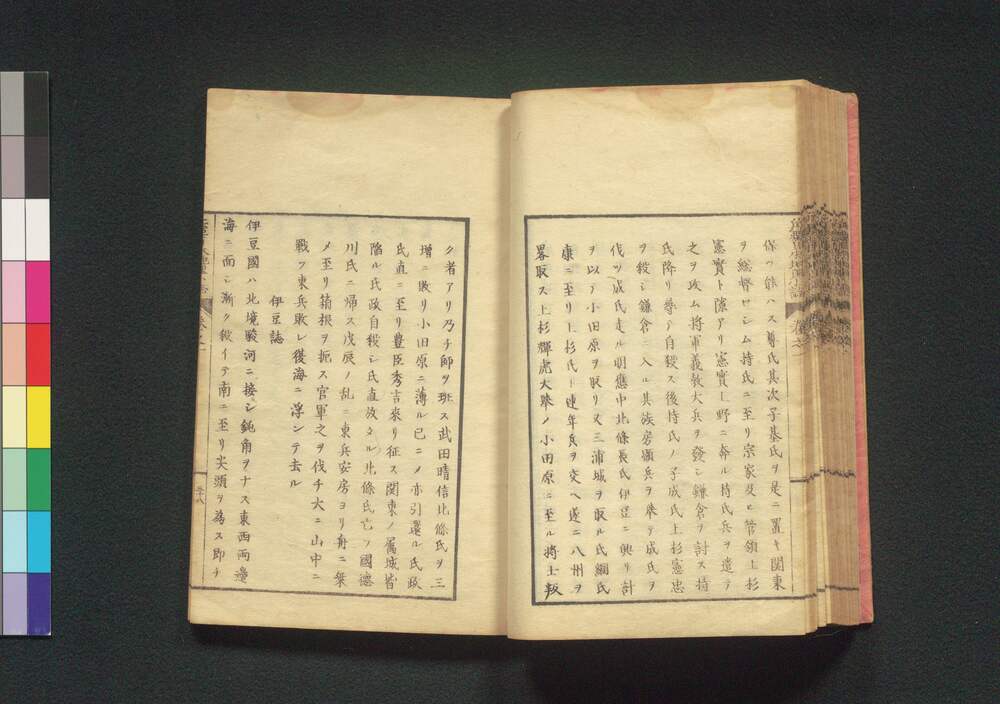 保ツ能ハス尊氏其次子基氏ヲ是ニ置キ関東
ヲ総督セシム持氏ニ至リ宗家及ヒ管領上杉
憲實ト隙アリ憲實上野ニ奔ル持氏兵ヲ遣テ
之ヲ攻ム将軍義教大兵ヲ發シ鎌倉ヲ討ス持
氏降リ尋テ自殺ス後持氏ノ子成氏上杉憲忠
ヲ殺シ鎌倉ニ入ル其族房顕兵ヲ舉テ成氏ヲ
伐ツ成氏走ル明應中北條長氏伊豆ニ興リ計
ヲ以テ小田原ヲ取リ又三浦城ヲ取ル氏綱氏
康ニ至リ上杉氏ト連年兵ヲ交ヘ遂ニ八州ヲ
畧取ス上杉輝虎大舉ノ小田原ニ至ル将士叛
ク者アリ乃チ師ヲ班ス武田晴信北條氏ヲ三
増ニ敗リ小田原ニ薄ル已ニノ亦引還ル氏政
氏直ニ至リ豊臣秀吉來リ征ス関東ノ属城皆
陷ル氏政自殺シ氏直放タル北條氏亡フ國德
川氏ニ帰ス戊辰ノ乱ニ東兵安房ヨリ舟ニ乗
メ至リ箱根ヲ扼ス官軍之ヲ伐チ大ニ山中ニ
戰フ東兵敗レ復海ニ浮シテ去ル
伊豆誌
伊豆國ハ北境駿河ニ接シ鈍角ヲナス東西両邊
海ニ面シ漸ク鋭イテ南ニ至リ尖頭ヲ為ス即チ
卷之一